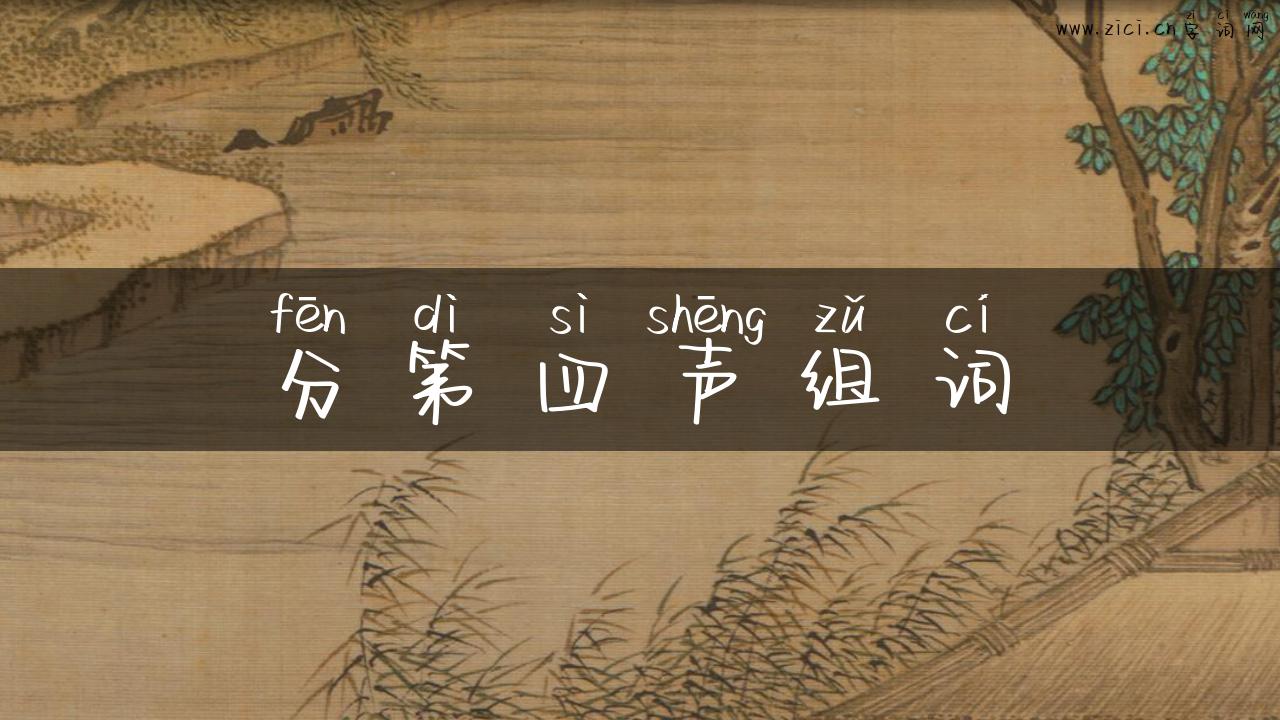 zì cí wǎng
www.zici.cn 字词网
fēn dì sì shēng zǔ cí
分第四声组词